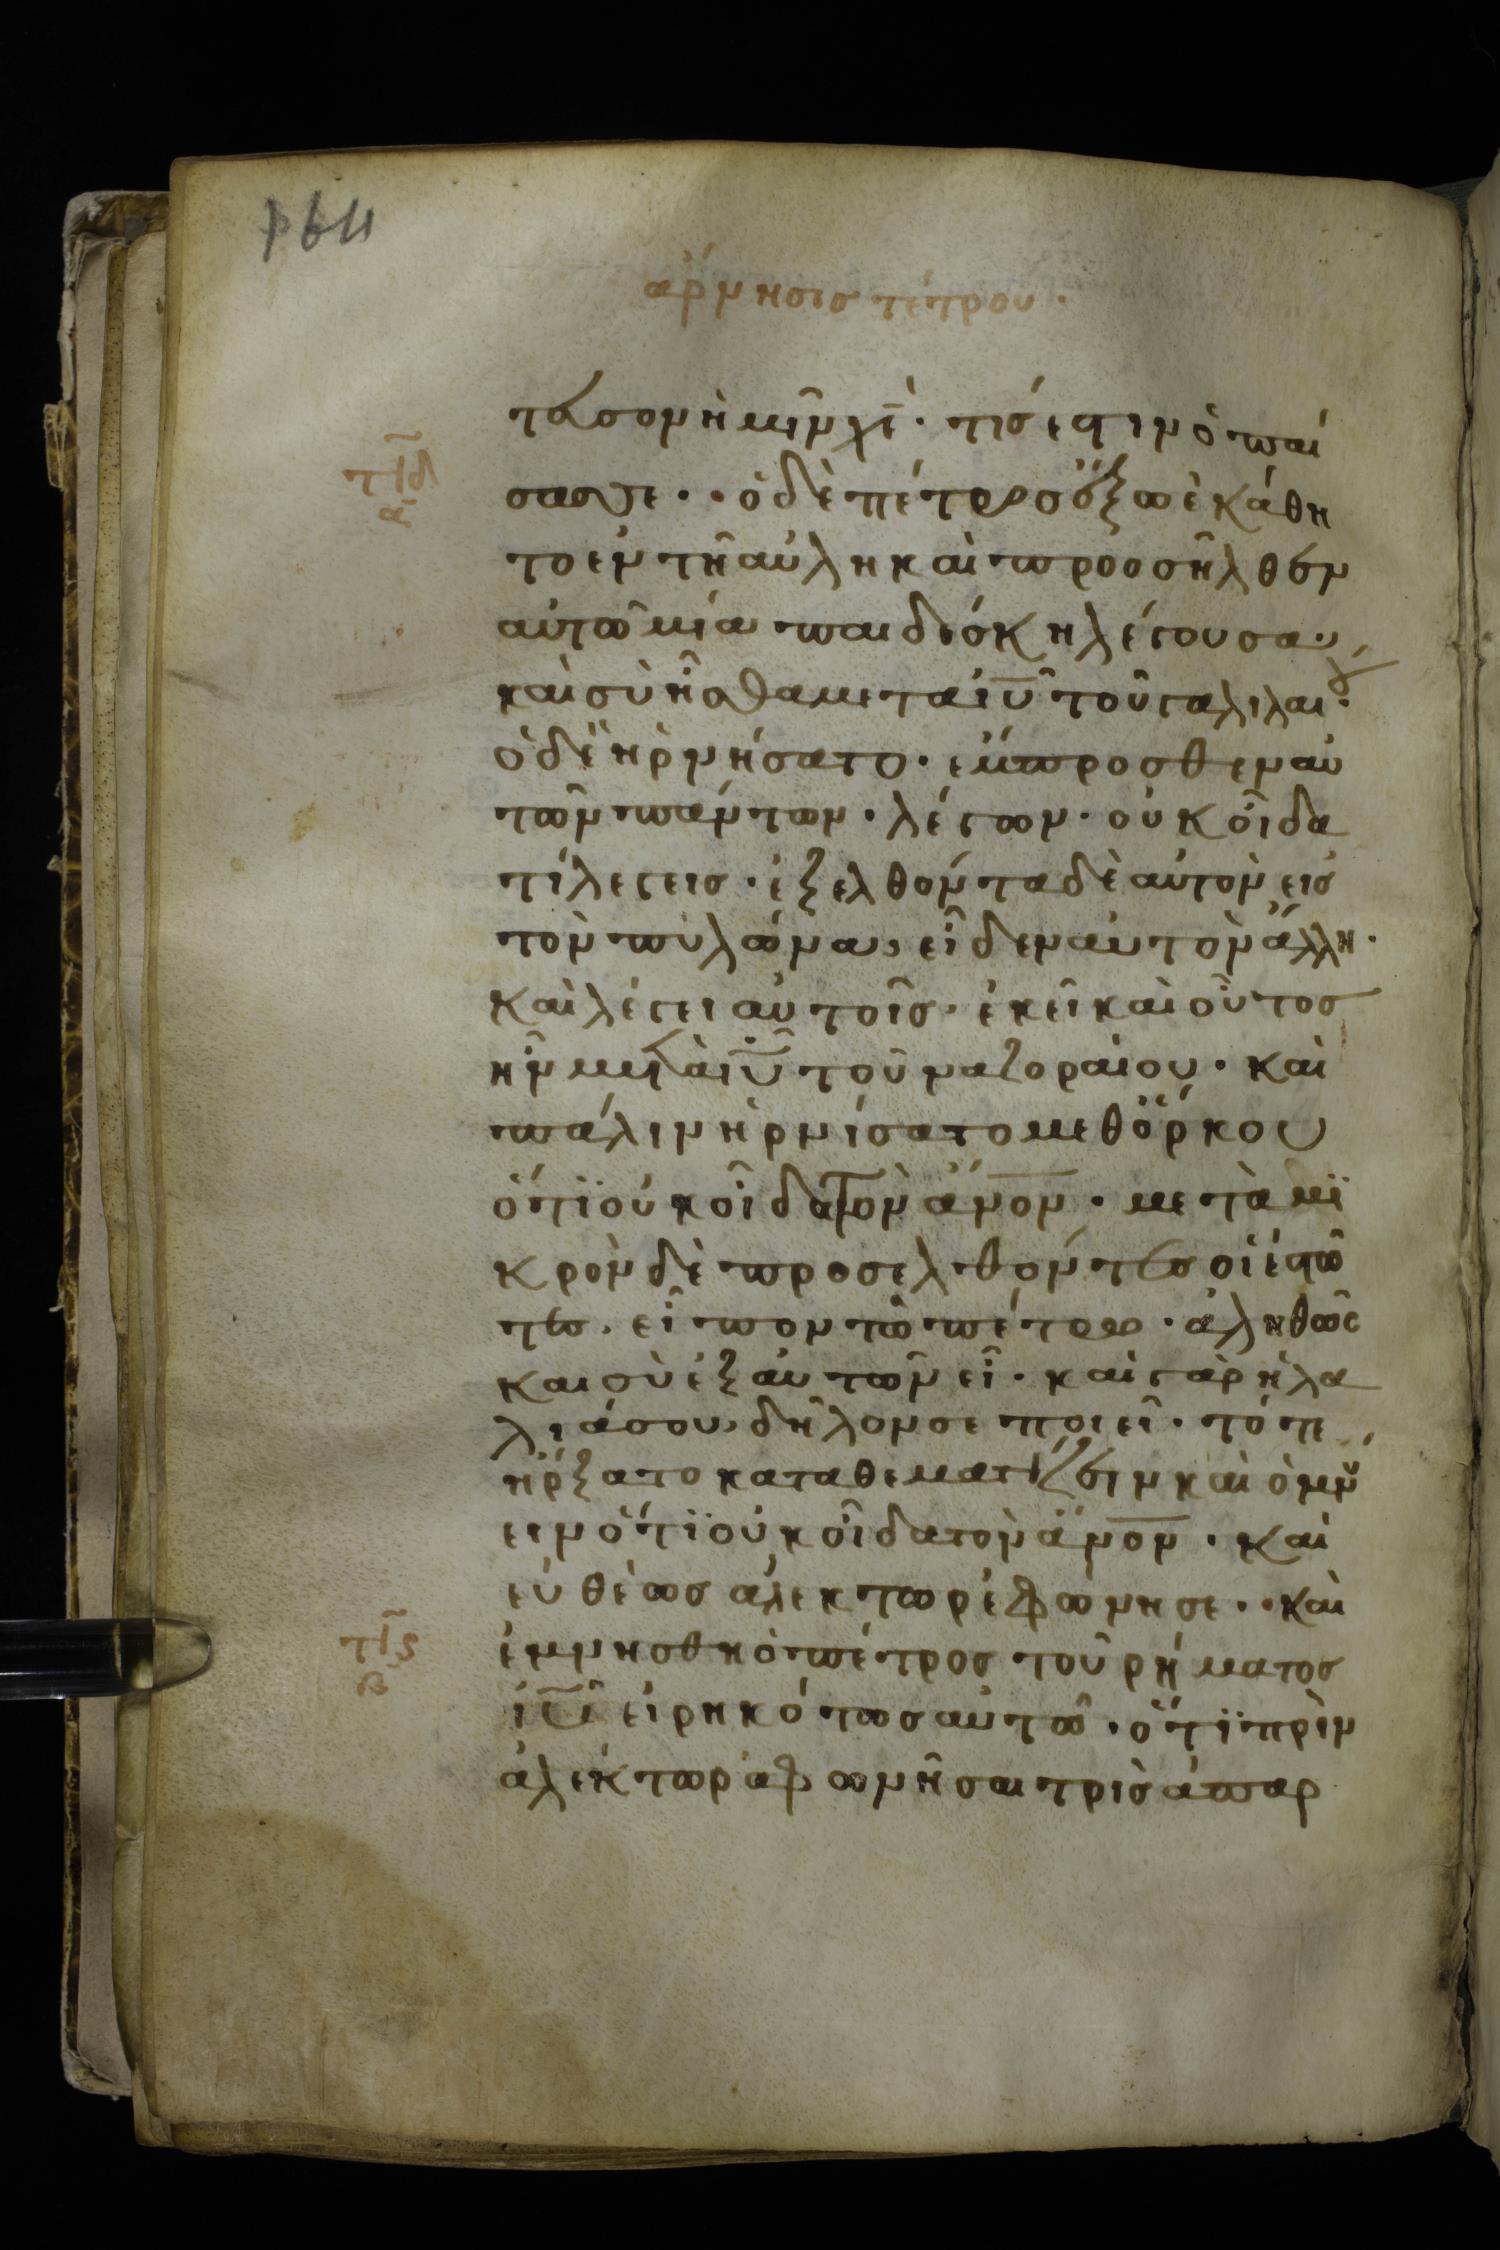 ἄρνησις πέτρου.
τευσον ἡμῖν χε̄· τίς ἐστιν ὁ παί
σας σε·· ὁ δὲ πέτρος ἔξω ἐκάθη
το ἐν τῆ αὐλη καὶ προσῆλθεν
αὐτῶ μία παιδίσκη λέγουσα,
καὶ σὺ ἦσθα μετα ἰῡ τοῦ γαλιλαίου·
ὁ δὲ ἠρνήσατο· ἔμπροσθεν αὐ
τῶν πάντων· λέγων· οὐκ οἶδα
τί λέγεις· ἐξελθόντα δὲ αὐτὸν εἰς
τὸν πυλῶνα, εἶδεν αὐτὸν ἄλλη·
καὶ λέγει αὐτοῖς· ἐκεῖ καὶ οὗτος
ἦν μετὰ ἰῡ τοῦ ναζοραίου· καὶ
πάλιν ἠρνίσατο μεθ ὅρκου
ὅτϊ οὐκ οἶδα τὸν ἄν̄ο̄ν̄· μετὰ μϊ
κρὸν δὲ προσελθόντες οἱ ἑστῶ
τες· εἶπον τῶ πέτρω· ἀληθῶς
και σὺ ἐξ αὐτῶν εἶ· καὶ γὰρ ἡ λα
λιά σου, δῆλον σε ποιεῖ· τότε
ἤρξατο καταθεματίζειν καὶ ὀμνύ
ειν ὅτϊ οὐκ οἶδα τὸν ἄν̄ο̄ν̄· καὶ
εὐθέως ἀλέκτωρ ἐφώνησε·· καὶ
ἐμνησθη ὁ πέτρος τοῦ ρήματος
ἰῡ εἰρηκότως αὐτῶ· ὅτϊ πρὶν
ἀλέκτωρα φωνῆσαι τρὶς ἀπαρ
τιδ
α
τις
β